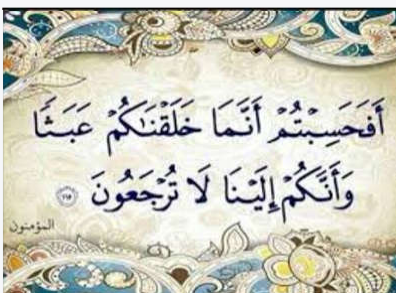 أَفَحَسِبْتُمْ أَنَّمَا خَلَقْنَٰكُمْ عَبَثًا
وَأَنَّكُمْ إِلَيْنَا لَا تُرْجَعُونَ ۝١١٥
المؤمنون